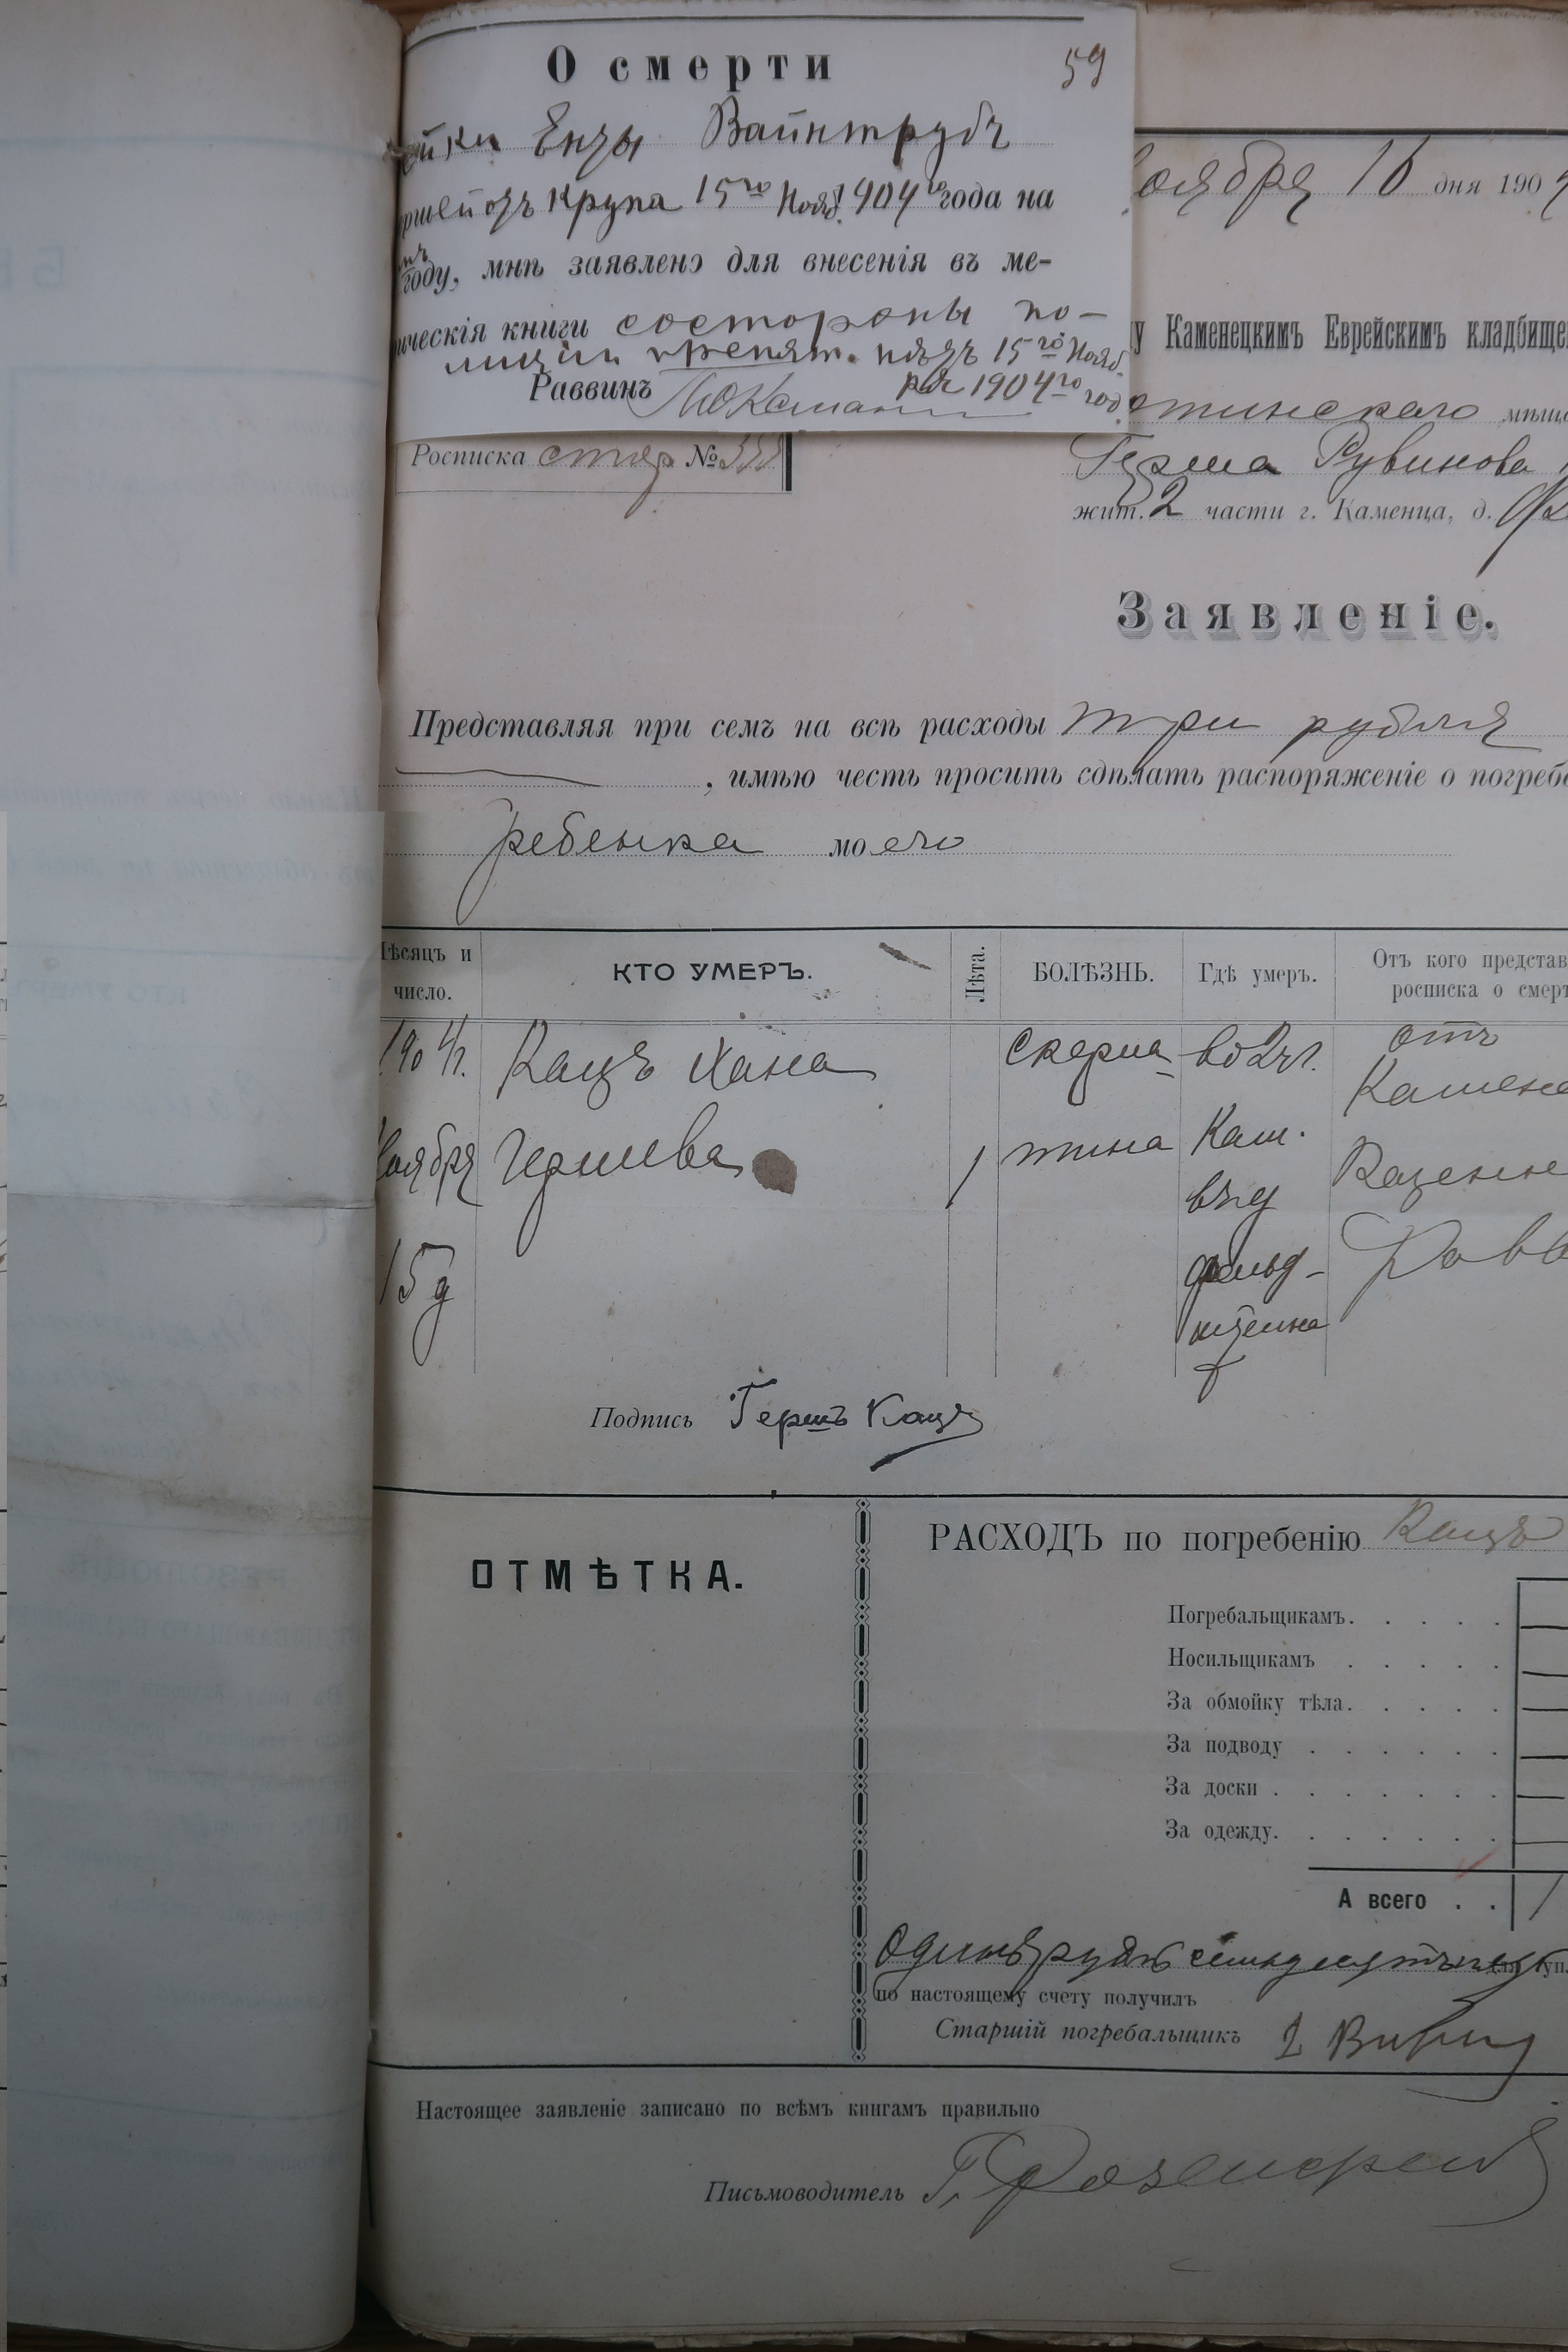 О смерти
59
Енты Вайнтрубъ
крупа 15го Нояб. 1904го года на
году, мнѣ заявлено для внесенія въ ме-
ическія книги состороны по-
лиціи препят. нѣтъ 15го Нояб
ря 1904го год
Раввинъ
оября 16 дня 1904
у Каменецкимъ Еврейскимъ кладбище
отинскаго мѣща
Росписка №
Герша Рувинова
жит. 2 части г. Каменца, д.
Заявленіе.
Представляя при семъ на всѣ расходы три рубля
, имѣю честь просить сдѣлать распоряженіе о погребе
ребенка моего
Мѣсяцъ и число.
КТО УМЕРЪ.
Лѣта.
БОЛѢЗНЬ.
Гдѣ умеръ.
Отъ кого представ
росписка о смерт
1904г.
Ноября
15 д
Кацъ Хана
Гершева
1
Скерла-
тина
во 2 ч.
Кам.
въ д
фельд-
штейна
отъ
Камене
Казенне
Равв
Подпись Гершъ Кацъ
ОТМѢТКА.
РАСХОДЪ по погребенію Кацъ
Погребальщикамъ.
Носильщикамъ
За обмойку тѣла.
За подводу
За доски
За одежду.
А всего . . 1
Одинъ рубль семьдесятъ
по настоящему счету получилъ
Старшій погребальщикъ
Настоящее заявленіе записано по всѣмъ книгамъ правильно
Письмоводитель Г.